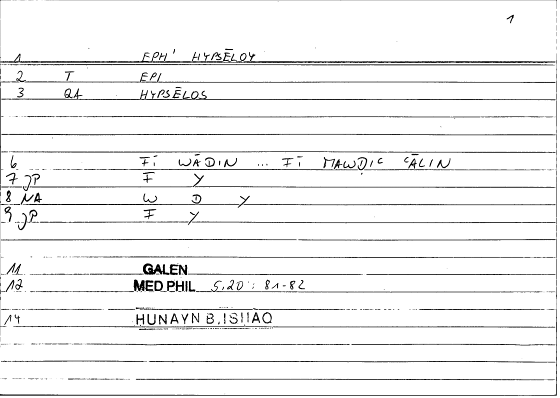 1
1 EPH' HYPSĒLOY
2 T EPI
3 QA HYPSĒLOS
6 FĪ WĀDIN ... FĪ MAWḌIʿ ʿĀLIN
7 JP F Y
8 NA W D Y
9 JP F Y
11 GALEN
12 MED PHIL 5,20: 81-82
14 HUNAYN B.ISHAQ